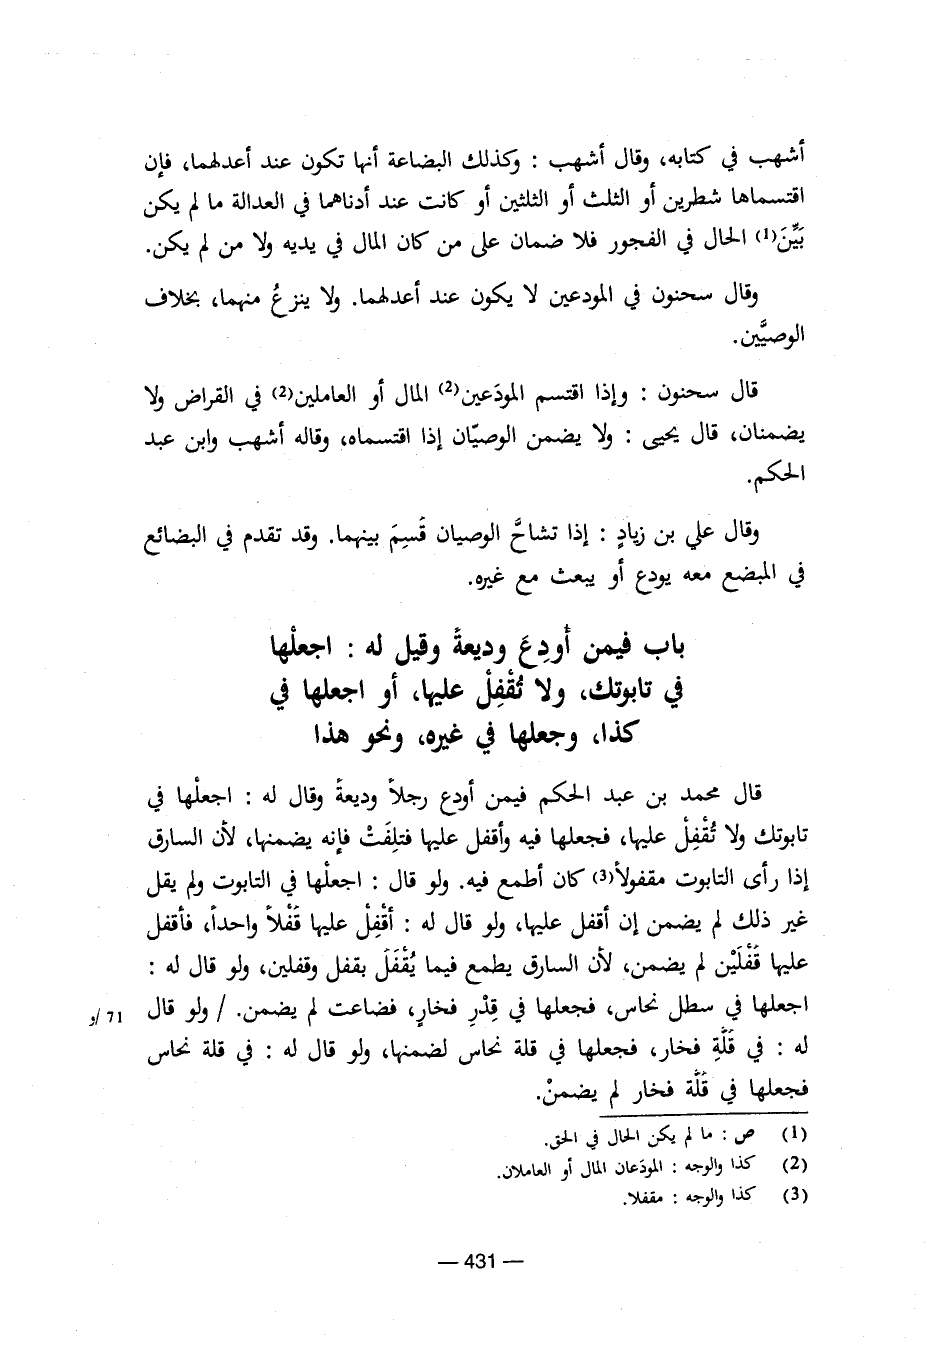 أشهب في كتابه، وقال أشهب : وكذلك البضاعة أنها تكون عند أعدلهما، فإن
اقتسماها شطرين أو الثلث أو الثلثين أو كانت عند أدناهما في العدالة ما لم يكن
بَيِّنَ(1) الحال في الفجور فلا ضمان على من كان المال في يديه ولا من لم يكن.
وقال سحنون في المودعين لا يكون عند أعدلهما. ولا ينزعُ منهما، بخلاف
الوصيَّين.
قال سحنون : وإذا اقتسم المودَعين(2) المال أو العاملين(2) في القراض ولا
يضمنان، قال يحيى : ولا يضمن الوصيّان إذا اقتسماه، وقاله أشهب وابن عبد
الحكم.
وقال علي بن زيادٍ : إذا تشاحَّ الوصيان قُسِمَ بينهما. وقد تقدم في البضائع
في المبضع معه يودع أو يبعث مع غيره.
باب فيمن أُودِعَ وديعةً وقيل له : اجعلْها
في تابوتك، ولا تُقْفِلْ عليها، أو اجعلها في
كذا، وجعلها في غيره، ونحو هذا
قال محمد بن عبد الحكم فيمن أودع رجلاً وديعةً وقال له : اجعلْها في
تابوتك ولا تُقْفِلْ عليها، فجعلها فيه وأقفل عليها فتلِفَتْ فإنه يضمنها، لأن السارق
إذا رأى التابوت مقفولاً(3) كان أطمع فيه. ولو قال : اجعلْها في التابوت ولم يقل
غير ذلك لم يضمن إن أقفل عليها، ولو قال له : أقْفِلْ عليها قُفْلاً واحداً، فأقفل
عليها قُفْلَيْن لم يضمن، لأن السارق يطمع فيما يُقْفَلَ بقفل وقفلين، ولو قال له :
اجعلها في سطل نحاس، فجعلها في قِدْرِ فخارٍ، فضاعت لم يضمن. / ولو قال
71/و
له : في قُلَّةِ فخار، فجعلها في قلة نحاس لضمنها، ولو قال له : في قلة نحاس
فجعلها في قُلَّة فخار لم يضمنْ.
(1) ص : ما لم يكن الحال في الحق.
(2) كذا والوجه : المودَعان المال أو العاملان.
(3) كذا والوجه : مقفلا.
— 431 —